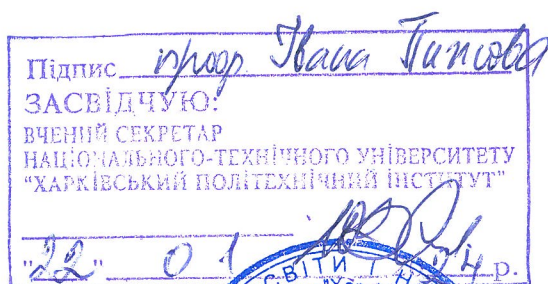 Підпис проф. Івана
ЗАСВІДЧУЮ:
ВЧЕНИЙ СЕКРЕТАР
НАЦІОНАЛЬНОГО-ТЕХНІЧНОГО УНІВЕРСИТЕТУ
"ХАРКІВСЬКИЙ ПОЛІТЕХНІЧНИЙ ІНСТИТУТ"
"22" 01 14 р.
ОСВІТИ І Н